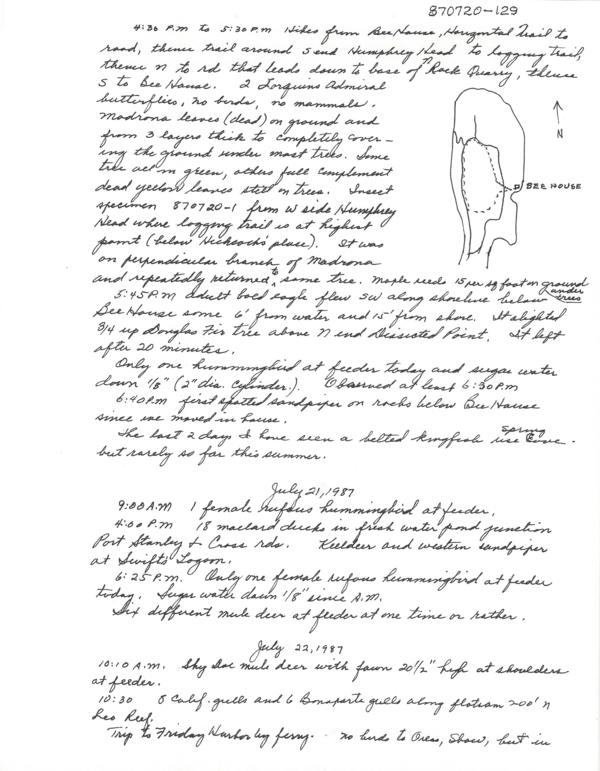 870720-129
4:30 P.M to 5:30 P.M Hikes from Bee House, Horizontal Trail to
road, thence trail around S end Humphrey Head to logging trail,
thence N to rd that leads down to base of Rock Quarry, thence
S to Bee House. 2 Lorquins Admiral
butterflies, no birds, no mammals.
Madrona leaves (dead) on ground and
from 3 layers thick to completely cover-
ing the ground under most trees. Some
tree all in green, others full complement
dead yellow leaves still on trees. Insect
specimen 870720-1 from W side Humphrey
Head where logging trail is at highest
point (below Hickcock's place). It was
on perpendicular branch of Madrona
and repeatedly returned to same tree. Maple seeds 15 per sq foot on ground under trees
N
BEE HOUSE
5:45 P.M adult bald eagle flew SW along shoreline below
Bee House some 6' from water and 15' from shore. It alighted
3/4 up Douglas Fir tree above N end Dissected Point. It left
after 20 minutes.
Only one hummingbird at feeder today and sugar water
down 1/8" (2" dia. cylinder.). Observed at least 6:30 P.M
6:40 P.M first spotted sandpiper on rocks below Bee House
since we moved in house.
The last 2 days I have seen a belted kingfish use Spring Cove.
but rarely so far this summer.
July 21, 1987
9:00 A.M 1 female rufous hummingbird at feeder.
4:00 P.M 18 mallard ducks in fresh water pond junction
Port Stanley & Cross rds. Killdeer and western sandpiper
at Swifts Lagoon.
6:25 P.M. Only one female rufous hummingbird at feeder
today. Sugar water down 1/8" since A.M.
Six different mule deer at feeder at one time or rather.
July 22, 1987
10:10 A.M. Shy Doe mule deer with fawn 20 1/2" high at shoulders
at feeder.
10:30 8 Calif. gulls and 6 Bonaparte gulls along flotsam 200' N
Leo Reef.
Trip to Friday Harbor by ferry. - no birds to Orcas, Shaw, but in